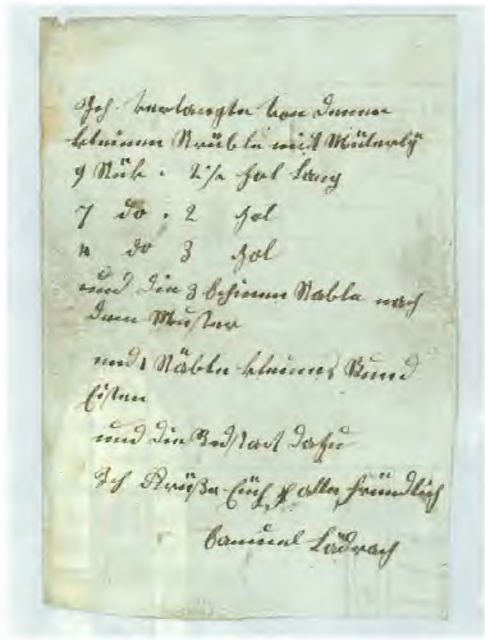 Ich verlangte von denen
kleinen Strüble mit Müterly
9 Stük . 2½ zol lang
7 do . 2 zol
4 do 3 zol
und die 3 Schinen Stable nach
dem Muster
und 1 Stäble kleines Rund
Eisen
und die dazu
Ich Grüße Eüch alle freündlich
Samuel Lädrach